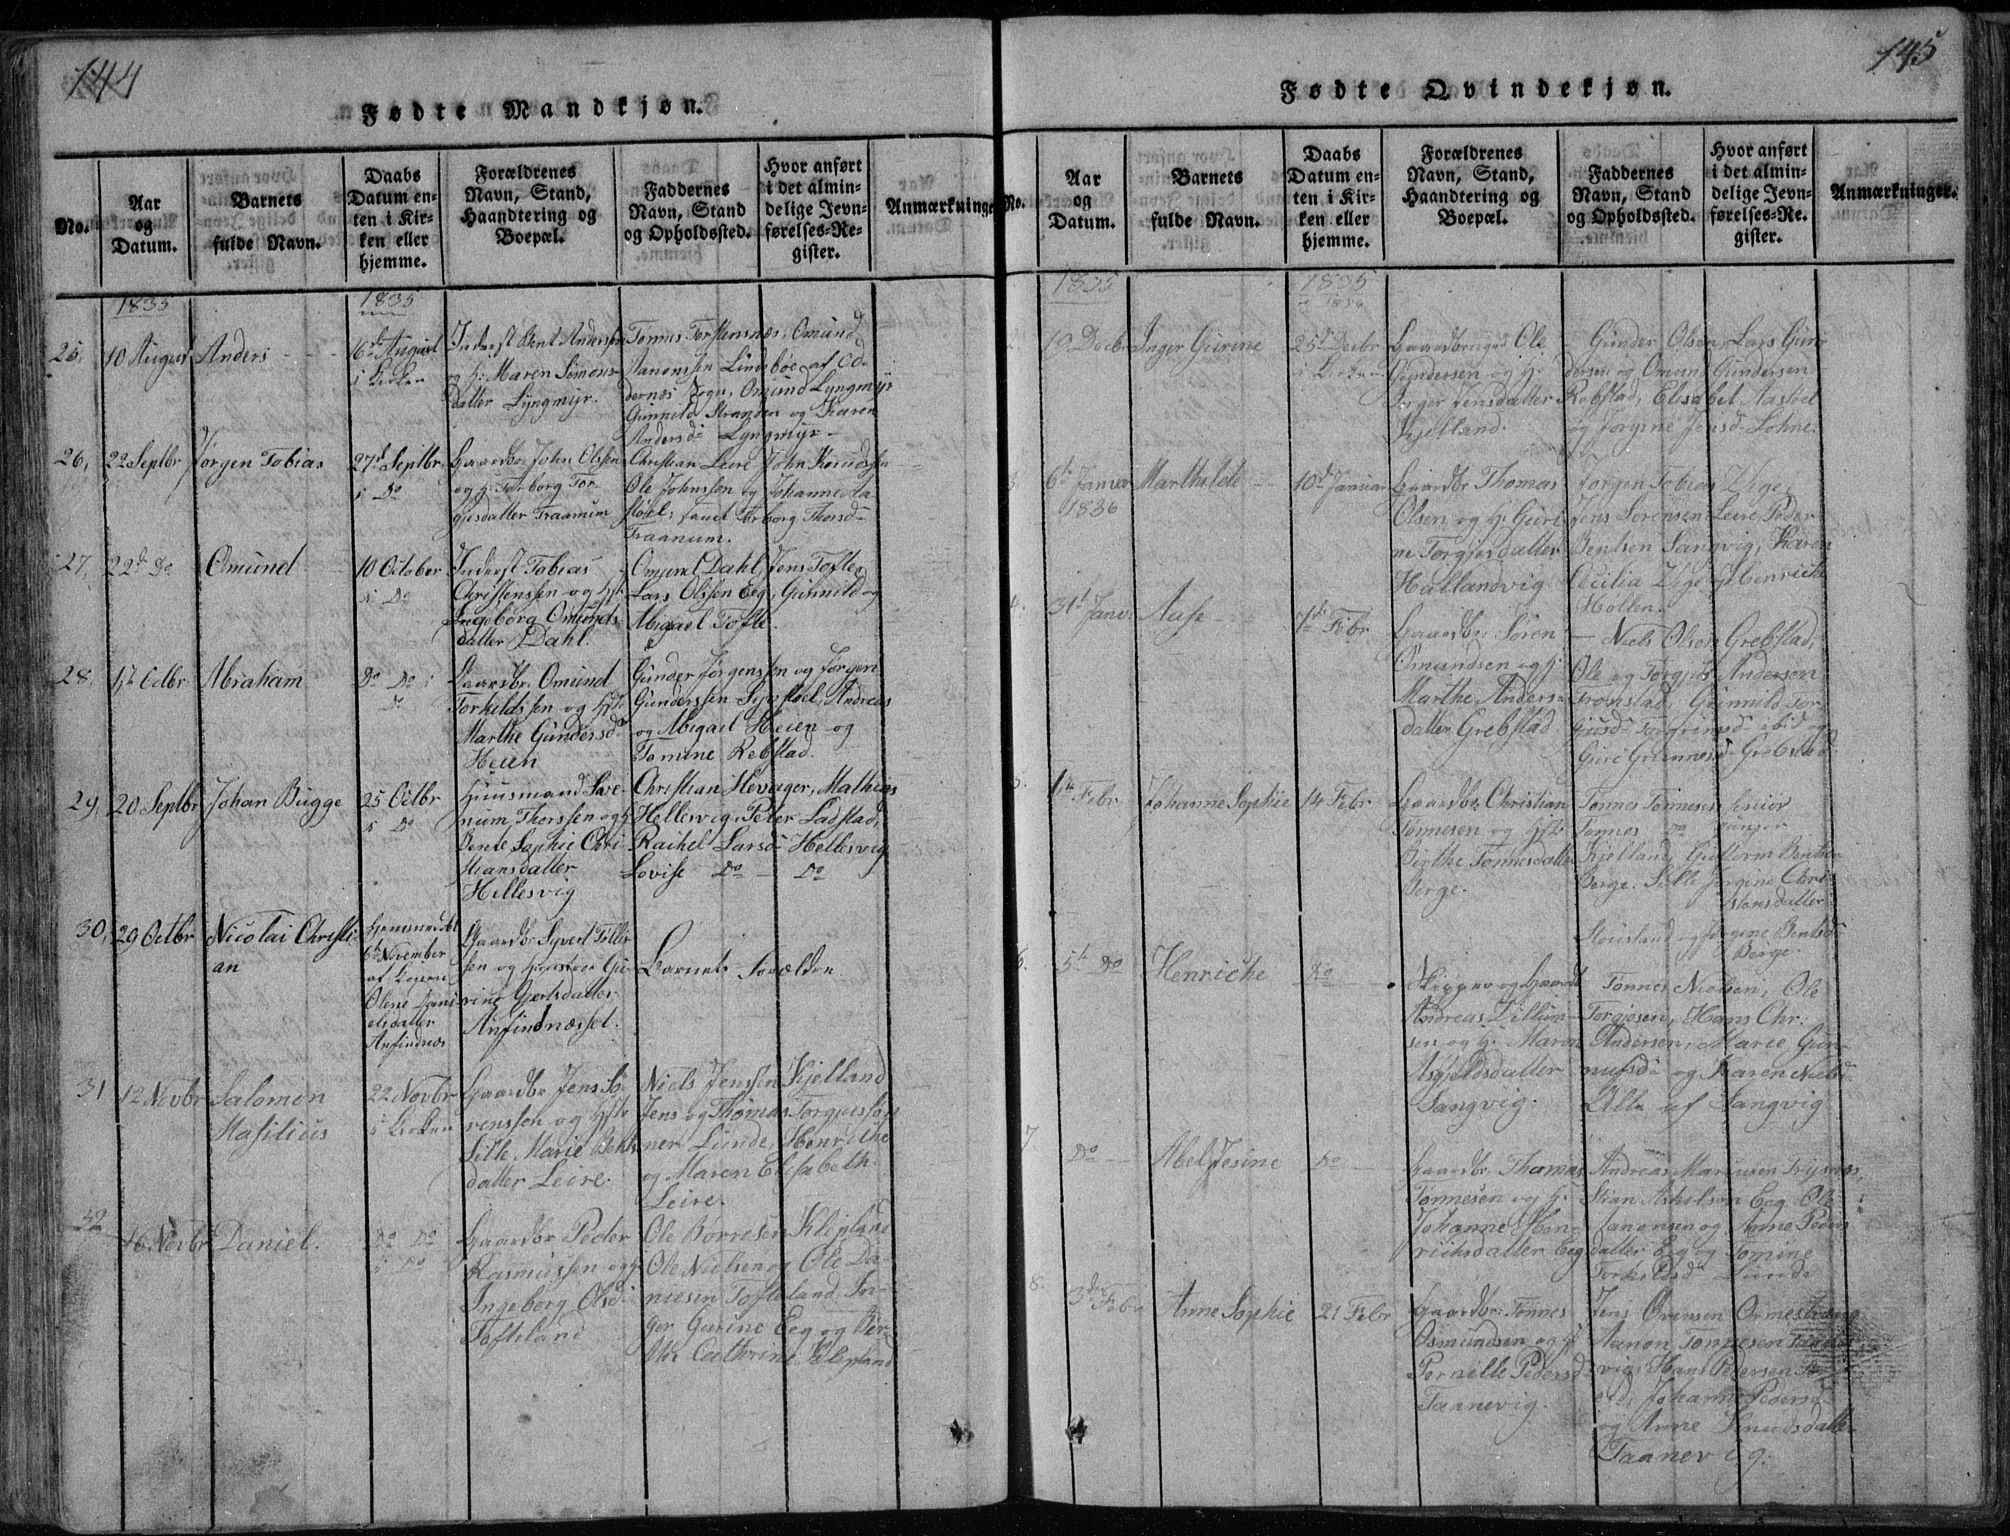 144
Fødte Mandkjøn.
No.
Aar og Datum.
Barnets fulde Navn.
Daabs Datum enten i Kirken eller hjemme.
Forældrenes Navn, Stand, Haandtering og Boepæl.
Faddernes Navn, Stand og Opholdssted.
Hvor anført i det almindelige Jevnførelses-Register.
Anmærkninge
1835
1835
25,
10 August
Anders
16de August
i Kirken
Inderst Bent Andersen
og H: Maren Simons-
datter Lyngmyr.
Tønnes Torkensnæs, Omund
Aanonssen Lindeboe af Od-
dernes Sogn, Omund Lyngmyr
Gunnild Stranden og Karen
Andersd: Lyngmyr
26,
22 Septbr
Jørgen Tobias
27d Septbr.
i Do
Gaardbr: John Olssen
og H: Torborg Tor-
gjesdatter Traanum
Christian Leire John Knudssen
Ole Johnssen og Johanne Aa-
støel, samt Torborg Thorsd-
Traanum.
27,
22d Do
Omund
10 October
i Do
Inderst Tobias
Christenssen og Hst:
Ingeborg Omunds
datter Dahl.
Omund Dahl Jens Tofte,
Lars Olssen Eeg, Gunnild og
Abigael Tofte.
28.
1st Octbr
Abraham
Do Do i
Do
Gaardbr: Omund
Torkildssen og Hst:
Marthe Gundersd
Heien
Gunder Jørgenssen og Jørgen
Gunderssen Systoel, Andreas
og Abigael Heien og
Tomine Rebstad.
29,
20 Septbr
Johan Bugge
25 Octbr
i Do
Huusmand Sore-
num Thorssen og H:
Bente Sophie Chri-
stiansdatter
Hellesvig
Christian Hevager, Mathias
Hellesvig, Peter Ladstad,
Rachel Larsd: Hellesvig
Lovise Do Do
30,
29 Octbr
Nicolai Christi-
an
Hjemmedøbt
6te November
af Kojerne
Olene Dani-
elsdatter
Anfindnæs
Gaardbr: Syvert Tollis-
sen og Hustroe Gu-
rine Gjertsdatter
Anfindnæsset.
Barnets Forældre
31
12 Novbr
Salomon
Masilius
22 Novbr
i Kirken
Gaardbr Jens Sø-
renssen og Hst:
Sille Marie Bents
datter Leire.
Niels Jenssen Kjelland
Jens og Thomas Torgussøn-
ner Lunde, Henriche
og Maren Elisabeth
Leire.
32
16 Novbr
Daniel.
Do Do
i Do
Gaardbr Peder
Rasmussen og H:
Ingeborg Olsd:
Tofteland
Ole Børresen Klepland
Ole Nielsen og Ole Da-
nielsen Tofteland, In-
ger Gurine Eeg og Ber-
the Cathrine Klepland
145
Fødte Qvindekjøn.
No.
Aar og Datum.
Barnets fulde Navn.
Daabs Datum enten i Kirken eller hjemme.
Forældrenes Navn, Stand, Haandtering og Boepæl.
Faddernes Navn, Stand og Opholdssted.
Hvor anført i det almindelige Jevnførelses-Register.
Anmærkninger.
1835
1835
10 Decbr
Inger Gurine
25de Decbr
i Kirken
Gaardbruger Ole
Gundersen og H:
Inger Jensdatter
Kjelland.
Gunder Olsen, Lars Gun-
dersen og Omun Gundersen
Rebstad, Elisabet Aastoel
og Jørgine Jensd- Lohne
3
6te Januar
1836
Marthilde
10d Januar
Gaardbr Thomas
Olsen og H: Guri-
ne Torgjesdatter
Hallandvig
Jørgen Tobias Ege
Jens Sørensen Leire Peder
Bentsen Sangvig, Karen
Cecilia Ege og Henriche
Hollen.
4.
31t Janv:
Aase
7de Febr
Gaardbr: Søren
Omundsen og H:
Marthe Anders-
datter Grebstad
Niels Olsen Grebstad,
Ole og Torgjus Anderson
Tromstad, Gunnild Tor-
Guri Grebstad.
5.
1te Febr
Johanne Sophie
14 Febr
Gaardbr: Christian
Tønnesen og Hst:
Birthe Tønnesdatter
Berge.
Tønnes Tønnesen senior
Tønnes Do junior
Kjelland, Guttorm Bentsen
Berge. Sille Jørgine Chri-
stensdatter
Stousland og Jørgine Bentsd:
Berge.
6.
5t Do
Henriche
Do
Skipper og Gaardbr
Andreas Tillum-
sen og H: Maren
Asgjeldsdatter
Sangvig.
Tønnes Nielsen, Ole
Torgjesen, Hans Chr:
Andersen, Marie Gun-
nufsd: og Karen Nielsd
Alle af Sangvig
7.
Do
Abel Jesine
Do
Gaardbr: Thomas
Tønnesen og H:
Johanne Hen-
richsdatter Eeg
Andreas Mariusen Trysnæs,
Stian Askilson Eeg Ole
Aanonsen og Anne Peders
datter Eeg og Tomine
Torkildsd: Lunde
8.
3die Febr
Anne Sophie
21 Febr
Gaardbr: Tønnes
Osmundsen og H:
Pernille Pedersd
Taanevig.
Jens Evensen Ormestrang
Aanon Tønnesen Taane-
vig Hans Pedersen
Johanne Pedersd
og Anne Knudsdatter
Taanevig.